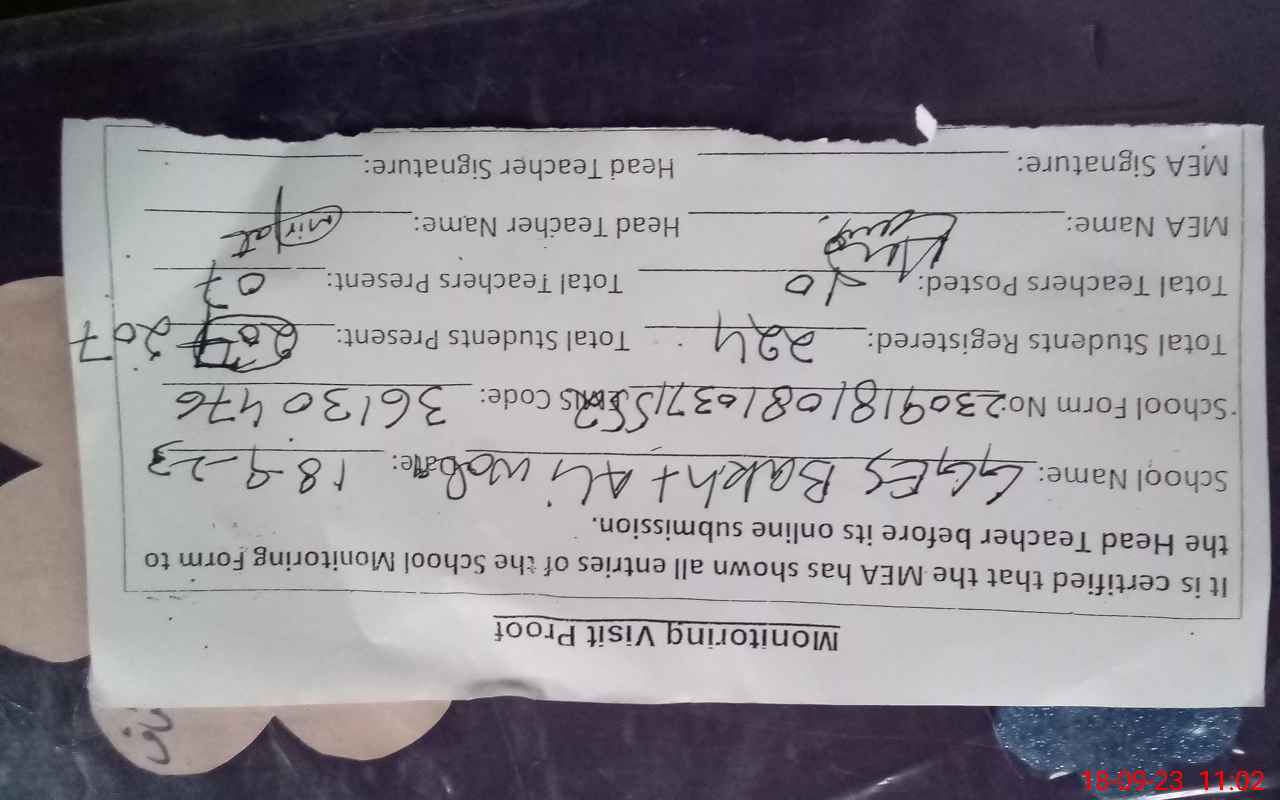 Monitoring Visit Proof
It is certified that the MEA has shown all entries of the School Monitoring Form to
the Head Teacher before its online submission.
School Name: GGES Bakht Ali wala Date: 18-9-23
School Form No: EMIS Code: 36130476
Total Students Registered: 224 Total Students Present: 207
Total Teachers Posted: 10 Total Teachers Present: 07
MEA Name: Head Teacher Name:
MEA Signature: Head Teacher Signature:
18-09-23 11:02